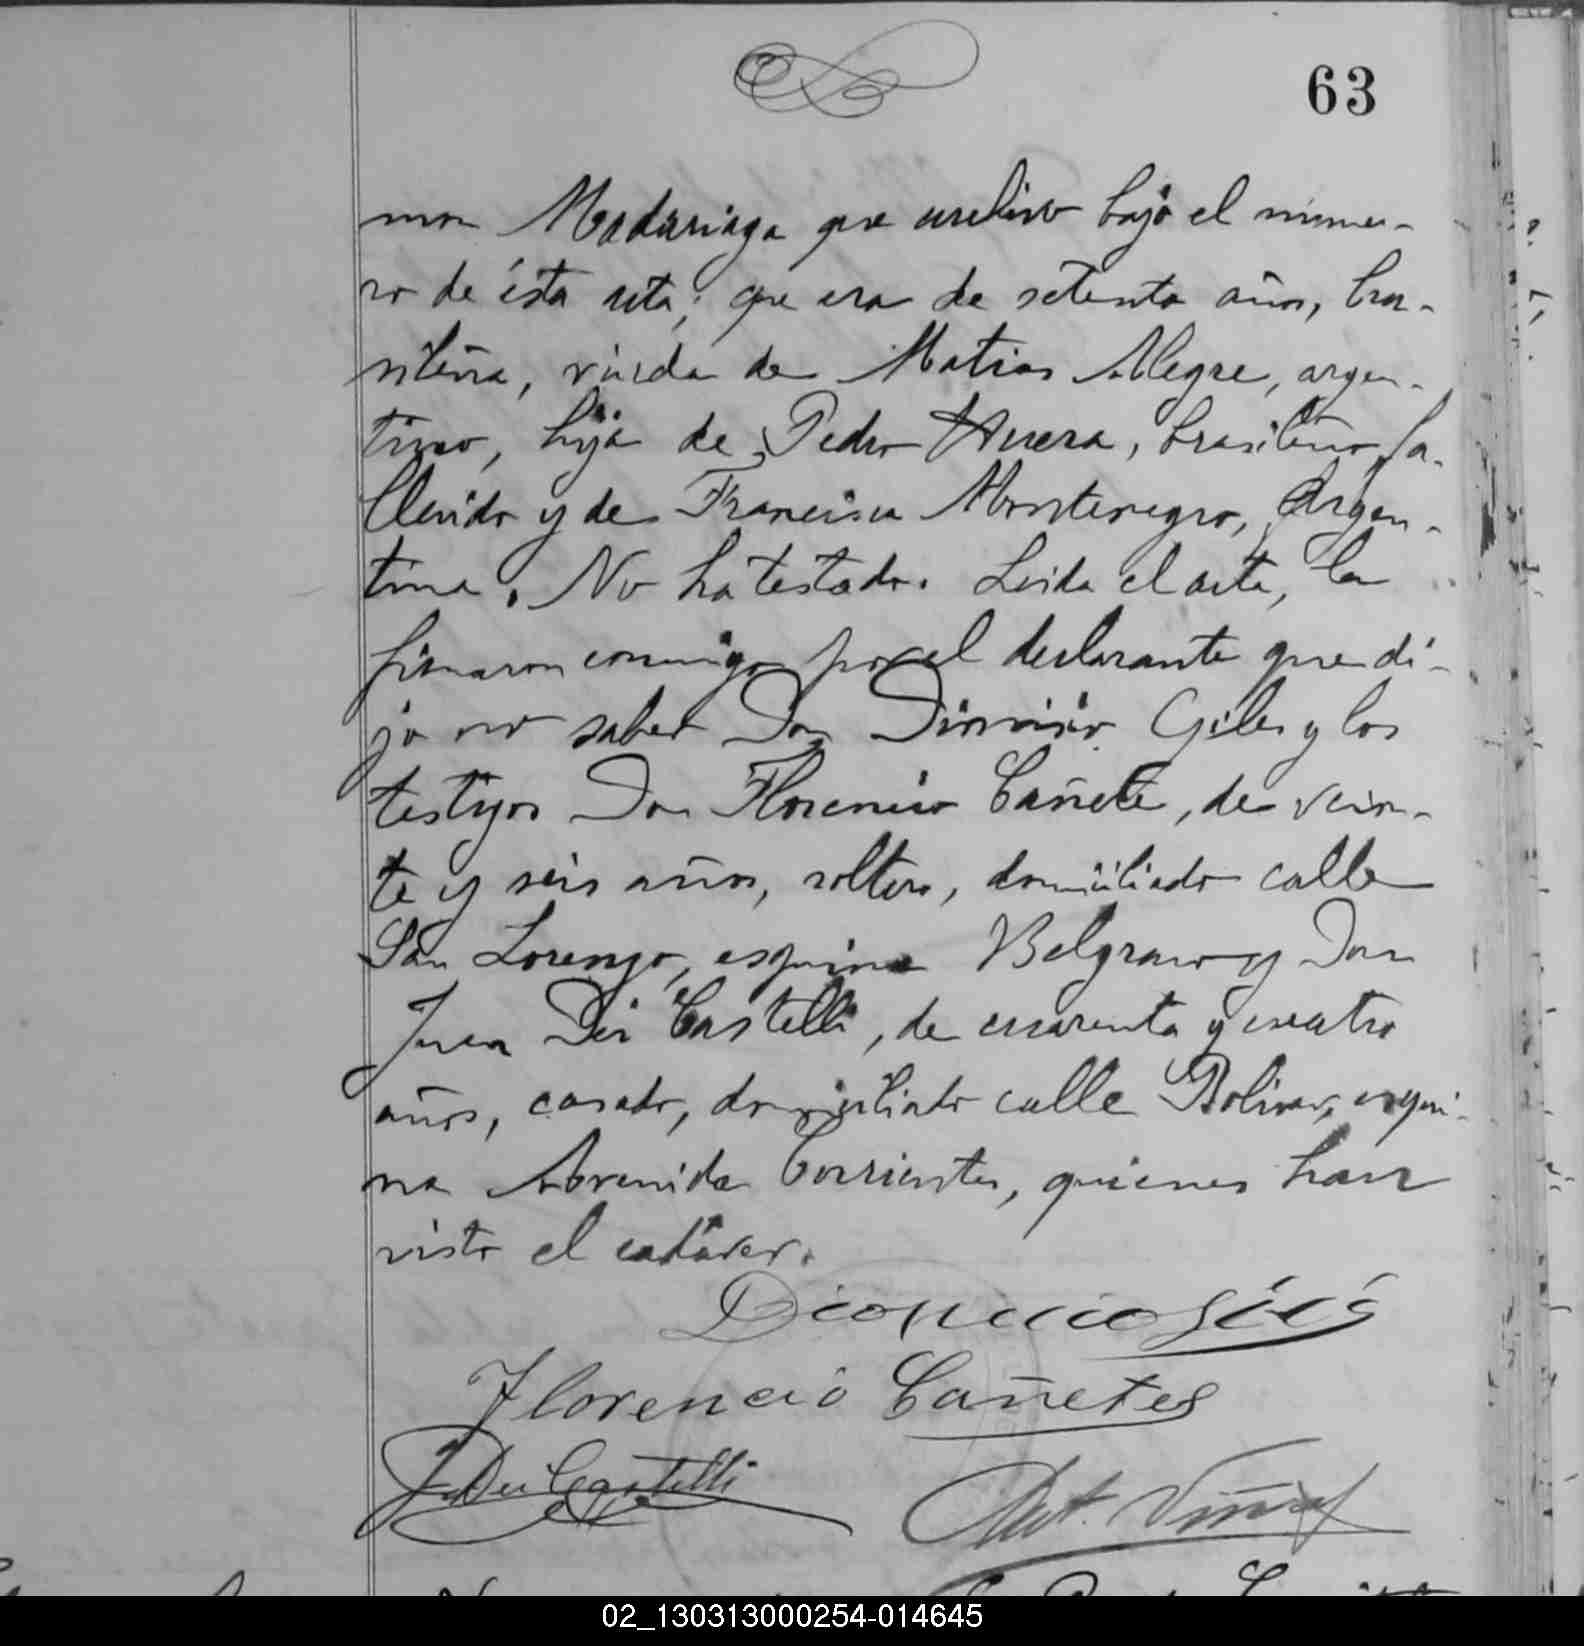 63
mon Madariaga que archivo bajo el núme-
ro de ésta acta; que era de setenta años, bra-
sileña, viuda de Matias Alegre, argen-
tino, hija de Pedro brasileño, fa-
llecido y de Francisca Montenegro, Argen-
tina. No ha testado. Leida el acta, la
firmaron conmigo por el declarante que di-
jo no saber Don Dionisio Giles y los
testigos Don Florencio Cañete, de vein-
te y seis años, soltero, domiciliado calle
San Lorenzo, esquina Belgrano y Don
Juan Dei Castelli, de cuarenta y cuatro
años, casado, domiciliado calle Bolivar, esqui-
na Avenida Corrientes, quienes han
visto el cadáver.
Dionicio Giles
Florencio Cañetes
J. Dei Castelli
Ant. Viñas
02_130313000254-014645